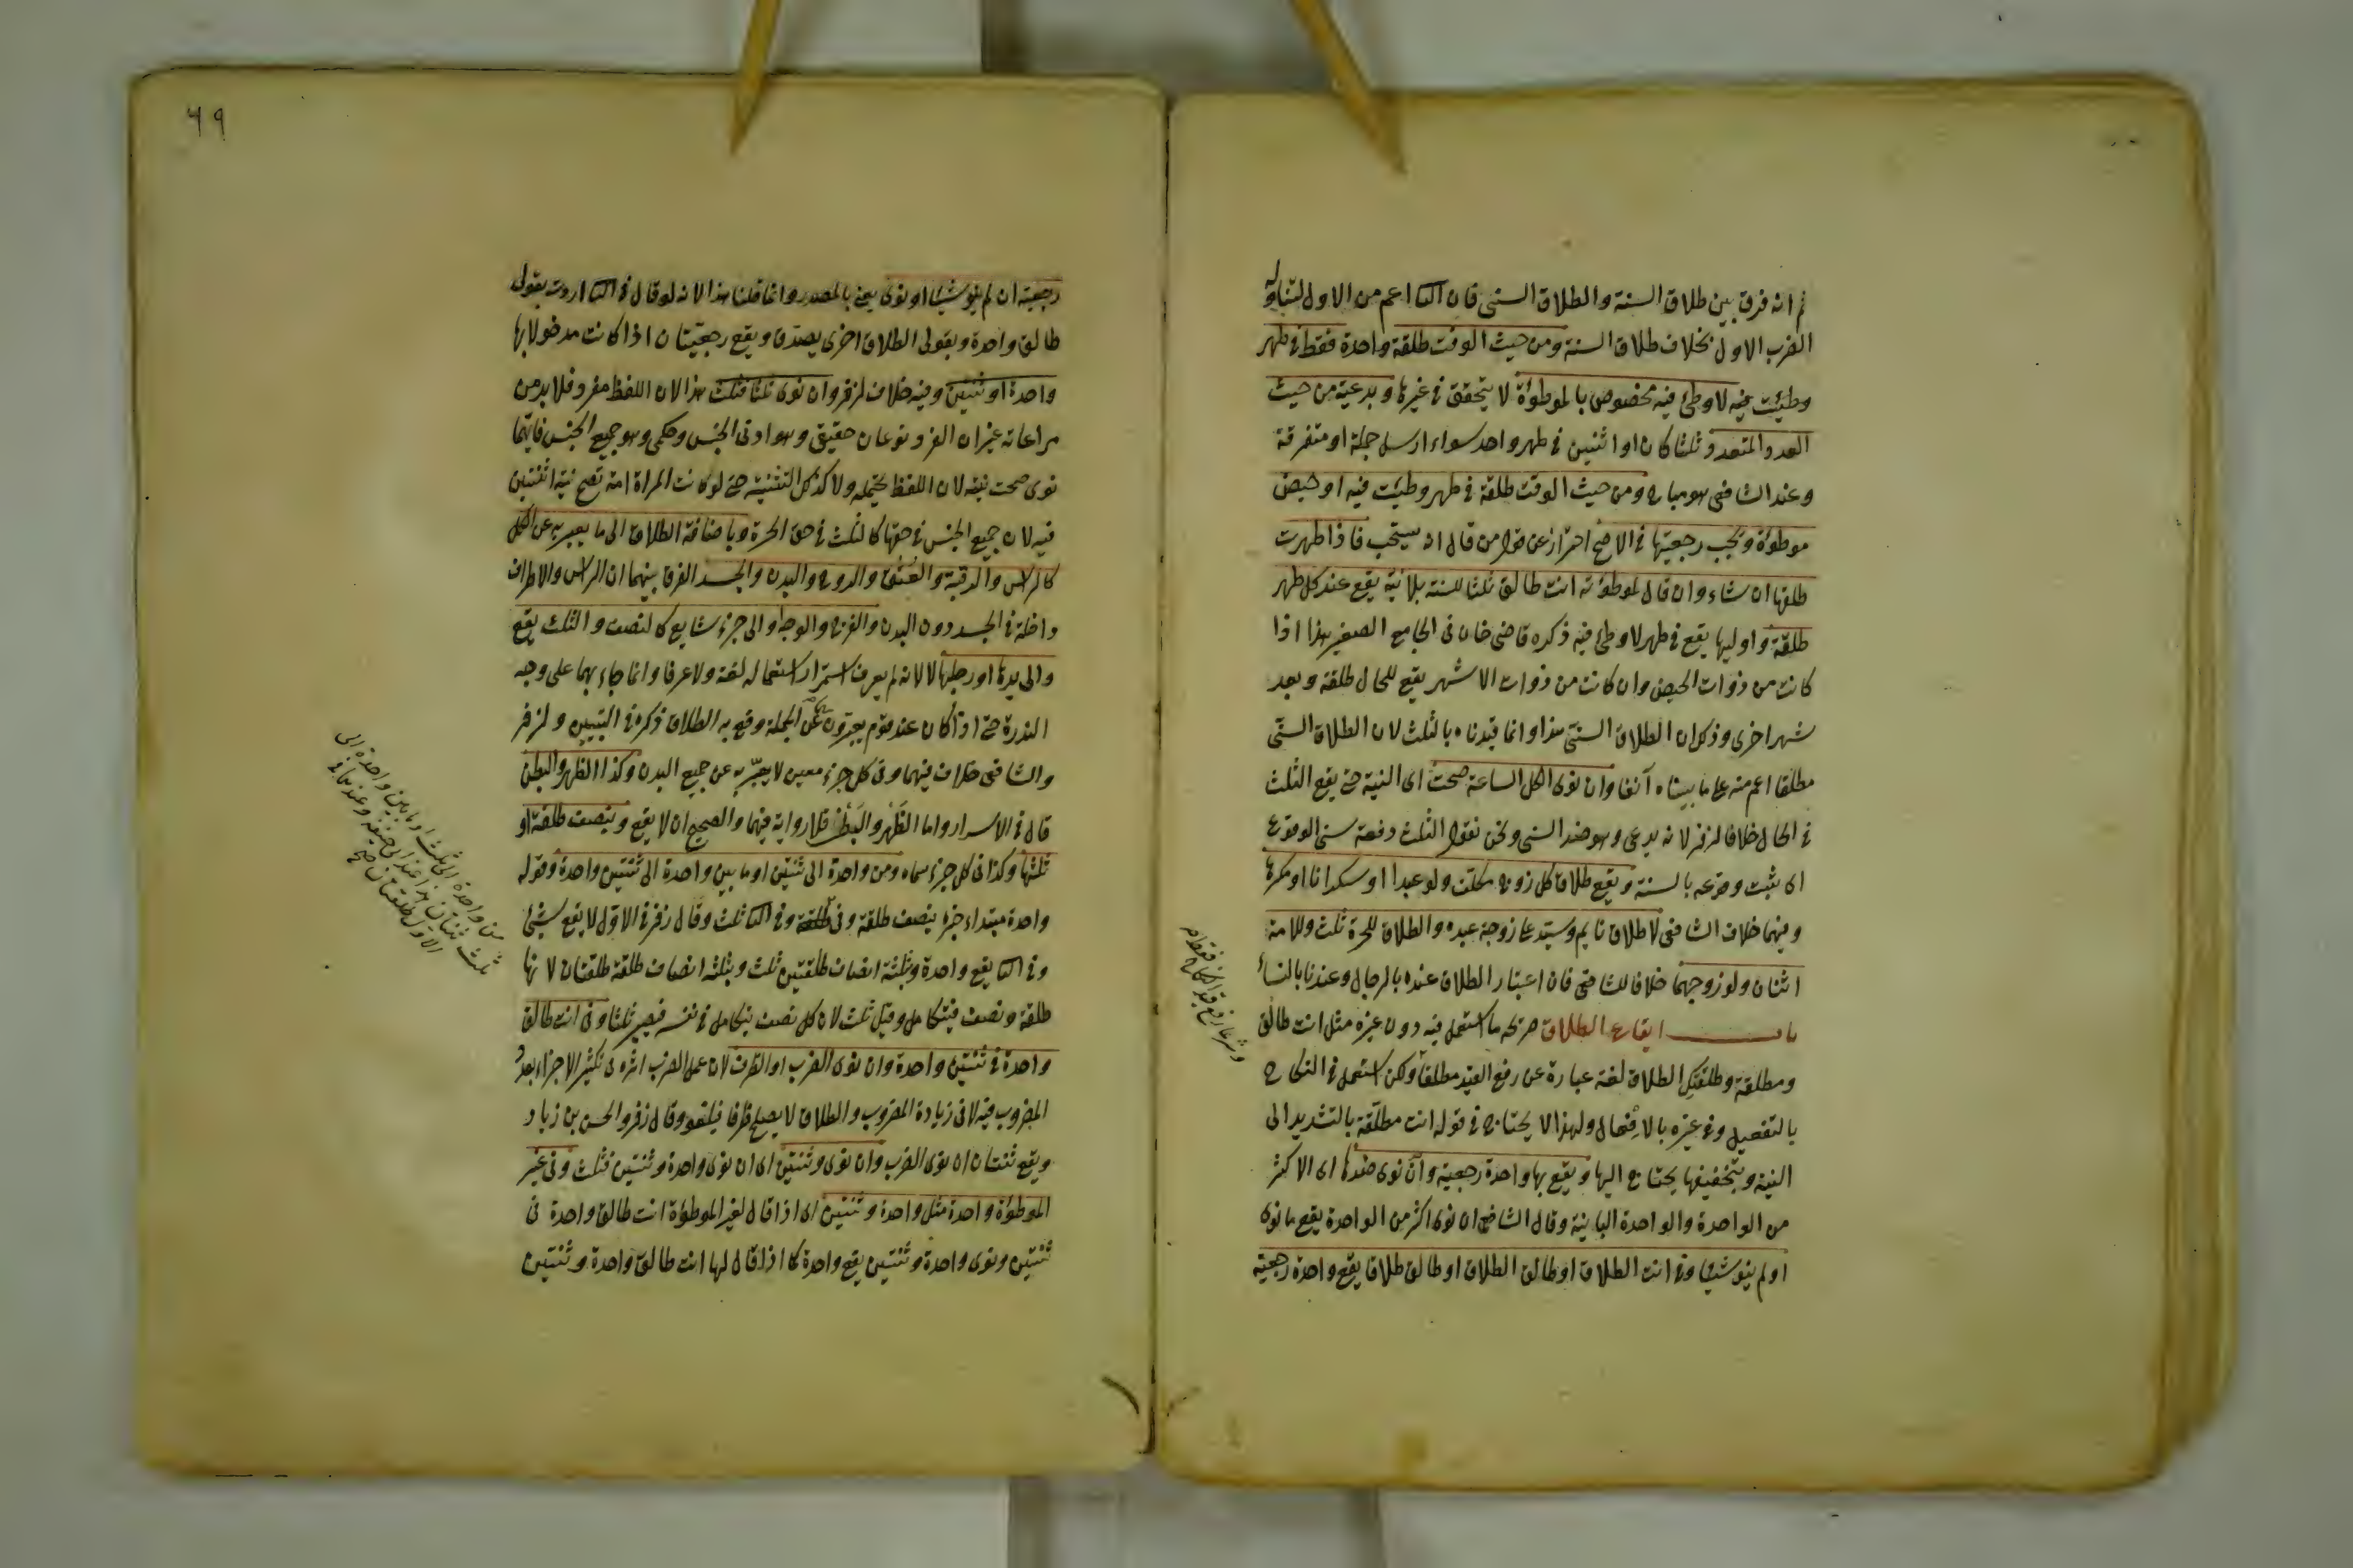 ثم انه فرق بين طلاق السنة والطلاق السنى فان الثا اعم من الاول لتناوله
الضرب الاول بخلاف طلاق السنة ومن حيث الوقت طلقة واحدة فقط فى طهر
وطئت فيه لا وطئ فيه مخصوص بالموطوءة لا يتحقق فى غيرها وبدعية من حيث
العدد المتعدد ثلثا كان او اثنين فى طهر واحد سواء ارسل جملة او متفرقة
وعند الشافى هو مباح ومن حيث الوقت طلقة فى طهر وطئت فيه او حيض
موطوءة وتجب رجعتها فى الاصح احتراز عن قول من قال انه يستحب فاذا طهرت
طلقها ان شاء وان قال لموطوءته انت طالق ثلثا للسنة بلا نية يقع عند كل طهر
طلقة واوليها يقع فى طهر لا وطئ فيه ذكره قاضى خان فى الجامع الصغير هذا اذا
كانت من ذوات الحيض وان كانت من ذوات الاشهر يقع للحال طلقة وبعد
شهر اخرى وذكر ان الطلاق السنى هذا وانما قيدناه بالثلث لان الطلاق السنى
مطلقا اعم منه على ما بيناه آنفا وان نوى الكل الساعة صحت اى النية حتى يقع الثلث
فى الحال خلافا لزفر لانه بدعى وهو ضد السنى ونحن نقول الثلث دفعة سنى الوقوع
اى يثبت وقوعه بالسنة ويقع طلاق كل زوج مكلف ولو عبدا او سكرانا او مكرها
وفيهما خلاف الشافى لا طلاق نايم وسيد على زوجة عبده والطلاق للحرة ثلث وللامة
اثنان ولو زوجهما خلافا للشافى فان اعتبار الطلاق عنده بالرجال وعندنا بالنساء
باب ايقاع الطلاق صريحه ما استعمل فيه دون غيره مثل انت طالق
ومطلقة وطلقتك الطلاق لغة عبارة عن رفع القيد مطلقا ولكن استعمل فى النكاح
بالتفعيل وفى غيره بالافعال ولهذا لا يحتاج فى قوله انت مطلقة بالتشديد الى
النية وبتخفيفها يحتاج اليها ويقع بها واحدة رجعية وان نوى ضدها اى الاكثر
من الواحدة والواحدة الباينة وقال الشافى ان نوى اكثر من الواحدة يقع ما نوى
او لم ينو شيئا وفى انت الطلاق او طالق الطلاق او طالق طلاقا يقع واحدة رجعية
وشرعا رفع قيد النكاح
٦٩
رجعية ان لم ينو شيئا او نوى يعنى بالمصدر وانما قلنا هذا لانه لو قال فى الثا اردت بقولى
طالق واحدة وبقولى الطلاق اخرى يصدق ويقع رجعيتان اذا كانت مدخولا بها
واحدة او ثنتين وفيه خلاف لزفر وان نوى ثلثا فثلث هذا لان اللفظ مفرد فلا بد من
مراعاته غير ان الفرد نوعان حقيقى وهو ادنى الجنس وحكمى وهو جميع الجنس فايهما
نوى صحت نيته لان اللفظ يحتمله ولا كذلك التثنية حتى لو كانت المراة امة تصح نية اثنتين
فيه لان جميع الجنس فى حقها كالثلث فى حق الحرة وباضافة الطلاق الى ما يعبر به عن الكل
كالراس والرقبة والعنق والروح والبدن والجسد الفرق بينهما ان الراس والاطراف
داخلة فى الجسد دون البدن والفرج والوجه او الى جزء شايع كالنصف والثلث يقع
والى يدها او رجلها لا لانه لم يعرف استمرار استعماله لغة ولا عرفا وانما جاء بهما على وجه
الندرة حتى اذا كان عند قوم يعبرون به عن الجملة وقع به الطلاق ذكره فى التبيين ولزفر
والشافى خلاف فيهما وفى كل جزء معين لا يعبر به عن جميع البدن وكذا الظهر والبطن
قال فى الاسرار واما الظهر والبطن فلا رواية فيهما والصحيح ان لا يقع وبنصف طلقة او
ثلثها وكذا فى كل جزء سماه ومن واحدة الى ثنتين او ما بين واحدة الى ثنتين واحدة وقوله
واحدة مبتداء خبره بنصف طلقة وفى الثا ثلث وقال زفر فى الاول لا يقع شئ
وفى الثا يقع واحدة وبثلثة انصاف طلقتين ثلث وبثلثة انصاف طلقة طلقتان لانها
طلقة ونصف فيتكامل وقيل ثلث لان كل نصف يتكامل فى نفسه فيصير ثلثا وفى انت طالق
واحدة فى ثنتين واحدة وان نوى الضرب او الظرف لان عمل الضرب اثره فى تكثير الاجزاء بعدد
المضروب فيه لا فى زيادة المضروب والطلاق لا يصلح ظرفا فيلغو وقال زفر والحسن بن زياد
ويقع ثنتان ان نوى الضرب وان نوى وثنتين اى ان نوى واحدة وثنتين فثلث وفى غير
الموطوءة واحدة مثل واحدة وثنتين اى اذا قال لغير الموطوءة انت طالق واحدة فى
ثنتين ونوى واحدة وثنتين يقع واحدة كما اذا قال لها انت طالق واحدة وثنتين
واحدة الى ثلث او ما بين واحدة الى
ثلث ثنتان هذا عند ابى حنيفة وعندهما فى
الاول طلقتان صح